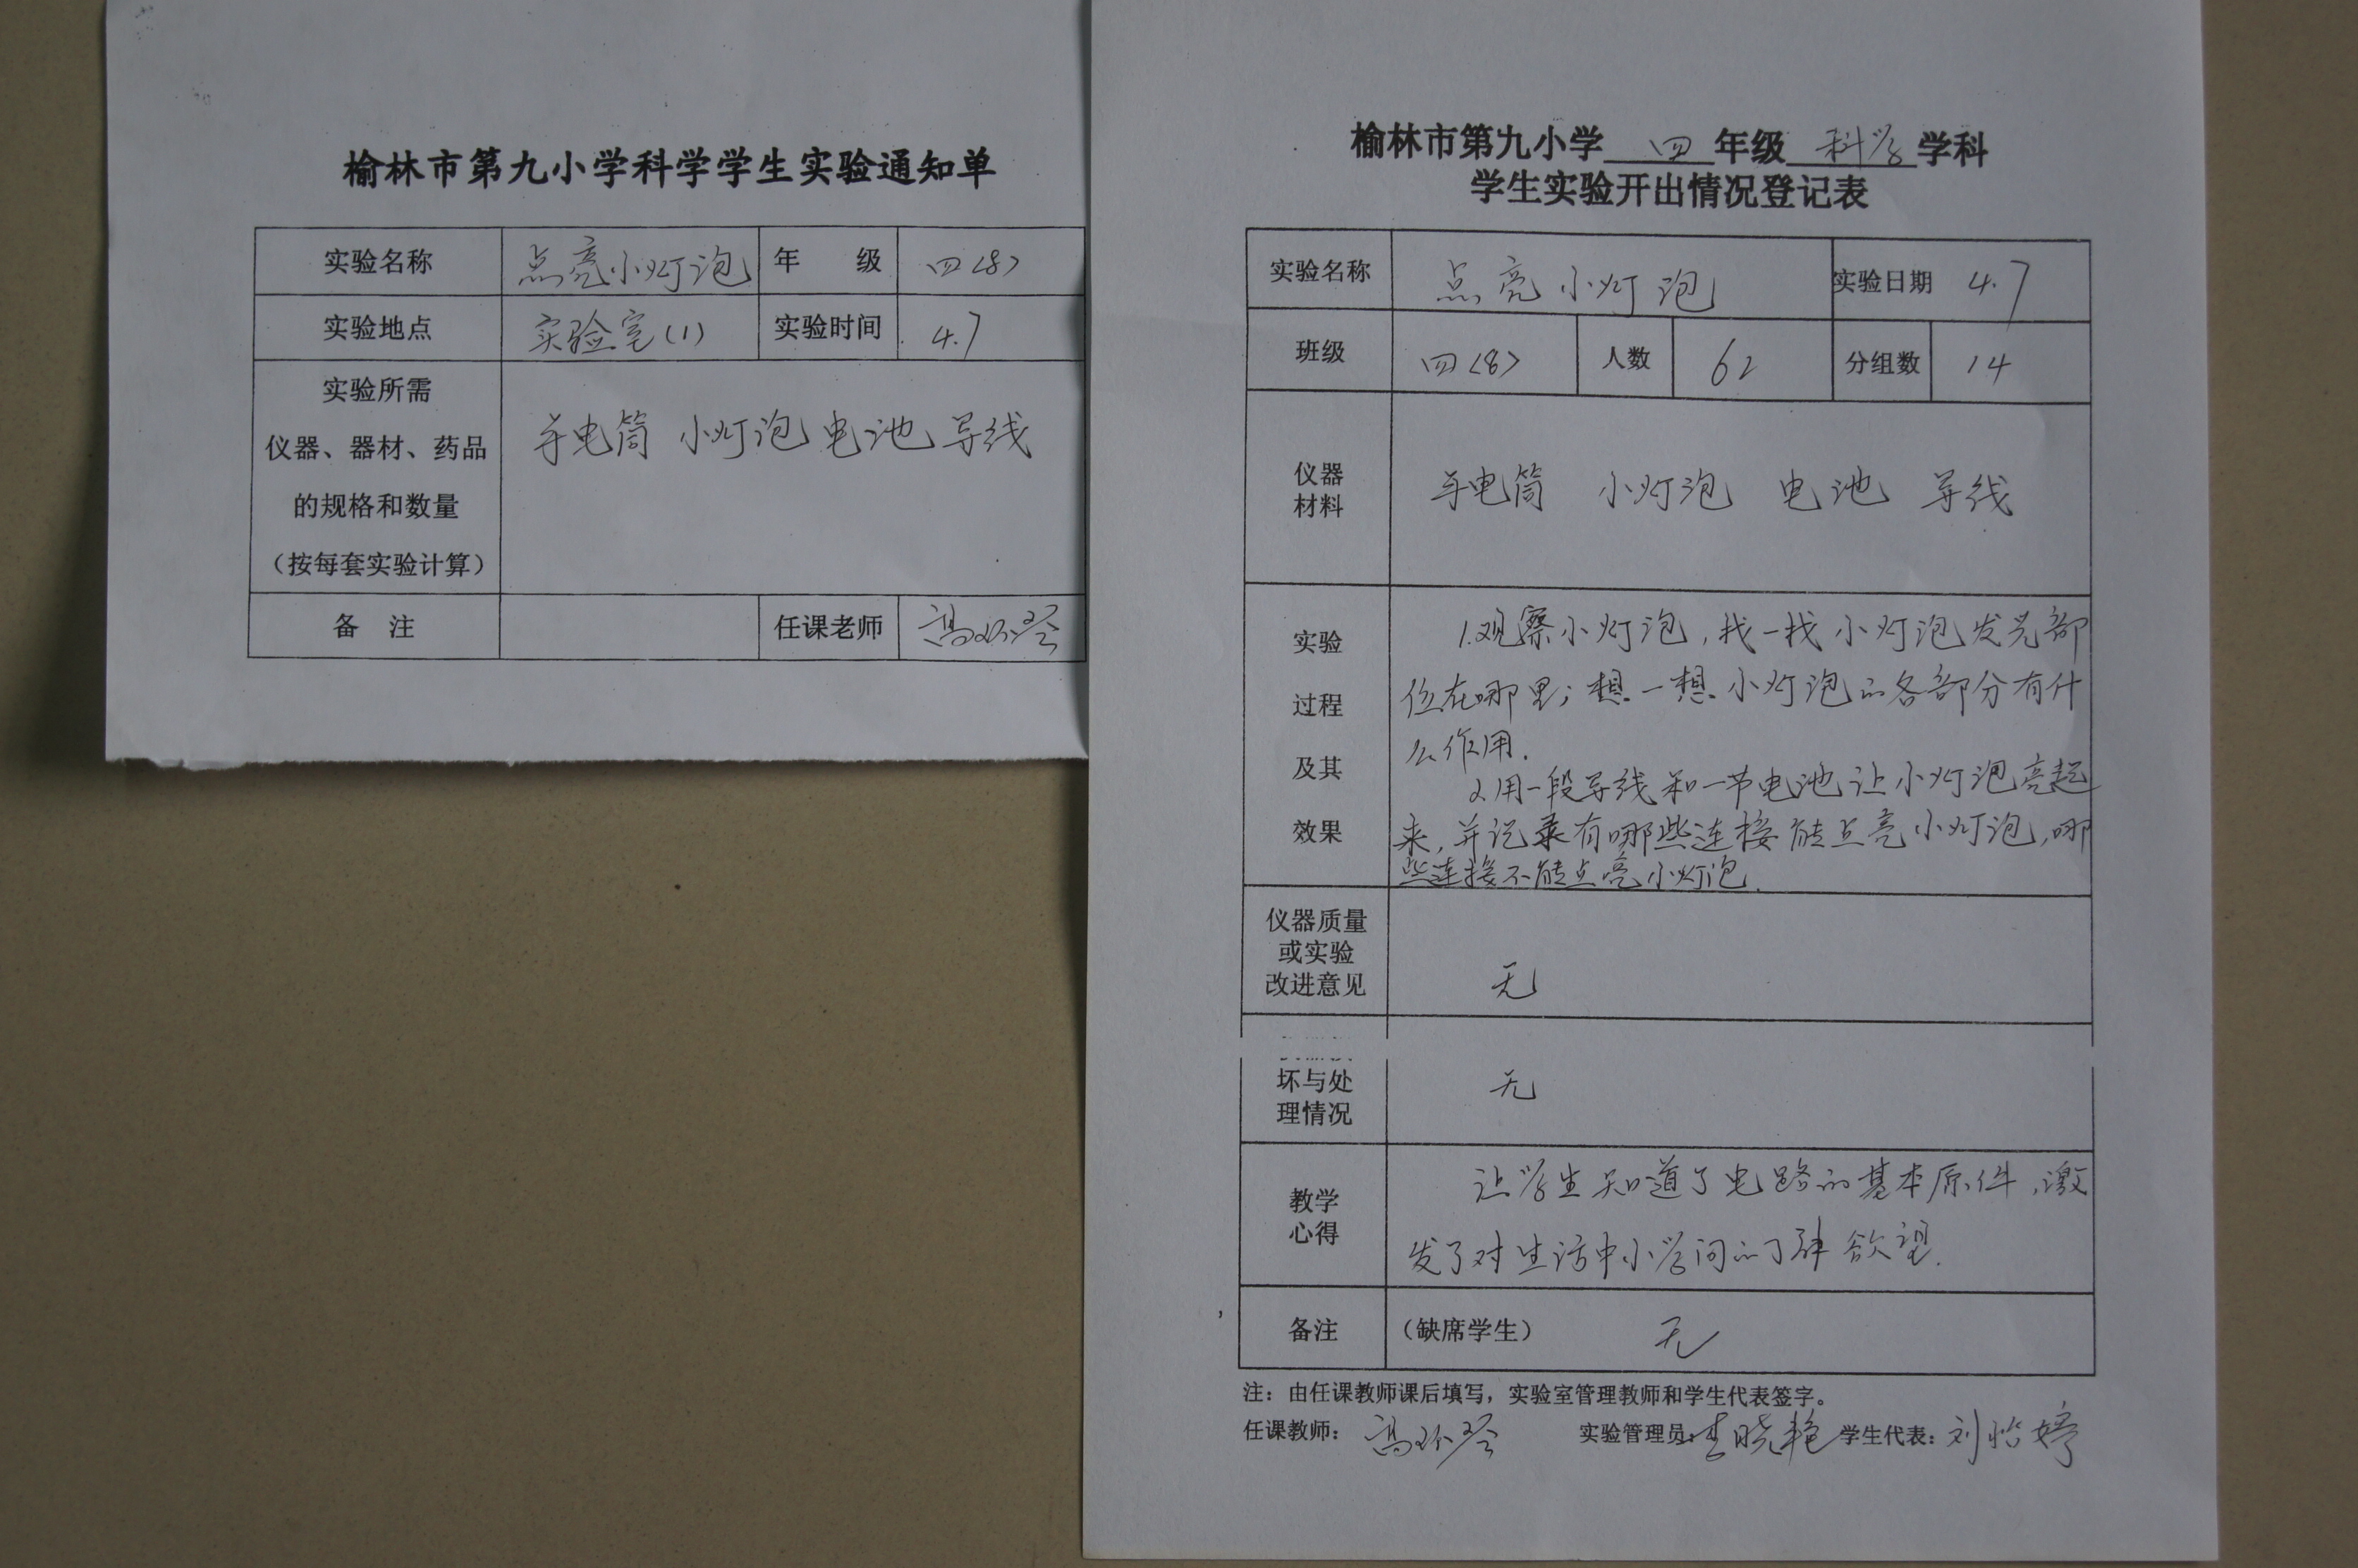 榆林市第九小学科学学生实验通知单
实验名称 点亮小灯泡 年 级 四<8>
实验地点 实验室(1) 实验时间 4.7
实验所需
仪器、器材、药品
的规格和数量
(按每套实验计算)
手电筒 小灯泡 电池 导线
备 注 任课老师 高
榆林市第九小学 四 年级 科学 学科
学生实验开出情况登记表
实验名称 点亮小灯泡 实验日期 4.7
班级 四<8> 人数 62 分组数 14
仪器
材料
手电筒 小灯泡 电池 导线
实验
过程
及其
效果
1.观察小灯泡,找一找小灯泡发光部
位在哪里;想一想小灯泡的各部分有什
么作用.
2.用一段导线和一节电池让小灯泡亮起
来,并记录有哪些连接能点亮小灯泡,哪
些连接不能点亮小灯泡.
仪器质量
或实验
改进意见
无
坏与处
理情况
无
教学
心得
让学生知道了电路的基本原件,激
发了对生活中小学问的了解欲望.
备注 (缺席学生) 无
注:由任课教师课后填写,实验室管理教师和学生代表签字。
任课教师: 高 实验管理员:李晓艳 学生代表:刘怡婷